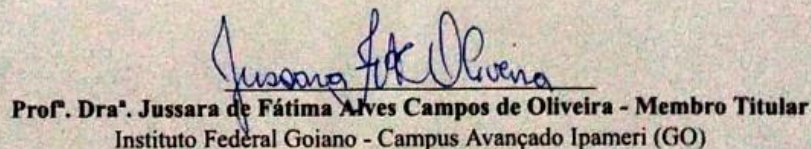 Jussara F A C Oliveira
Profª. Draª. Jussara de Fátima Alves Campos de Oliveira - Membro Titular
Instituto Federal Goiano - Campus Avançado Ipameri (GO)